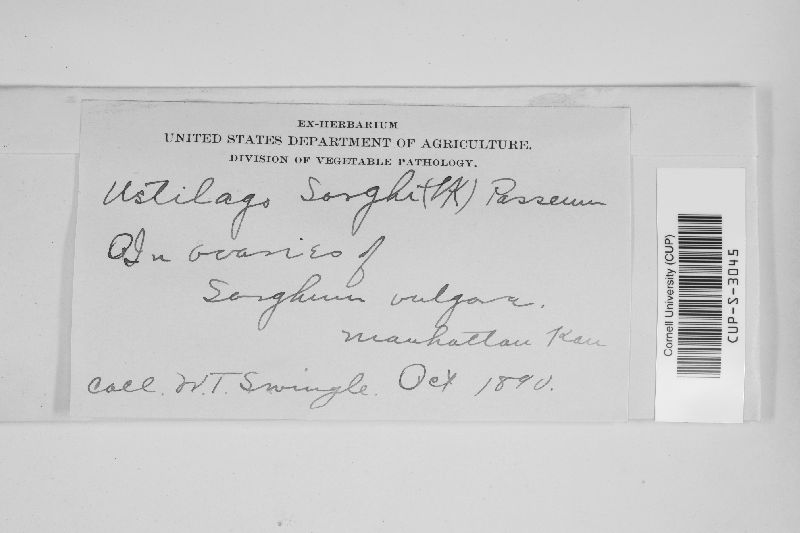 EX-HERBARIUM
UNITED STATES DEPARTMENT OF AGRICULTURE.
DIVISION OF VEGETABLE PATHOLOGY.
Ustilago Sorghi (LK) Passerin
In ovaries of
Sorghum vulgare.
Manhattan Kan
Coll. W.T. Swingle. Oct 1890.
Cornell University (CUP)
CUP-S-3045